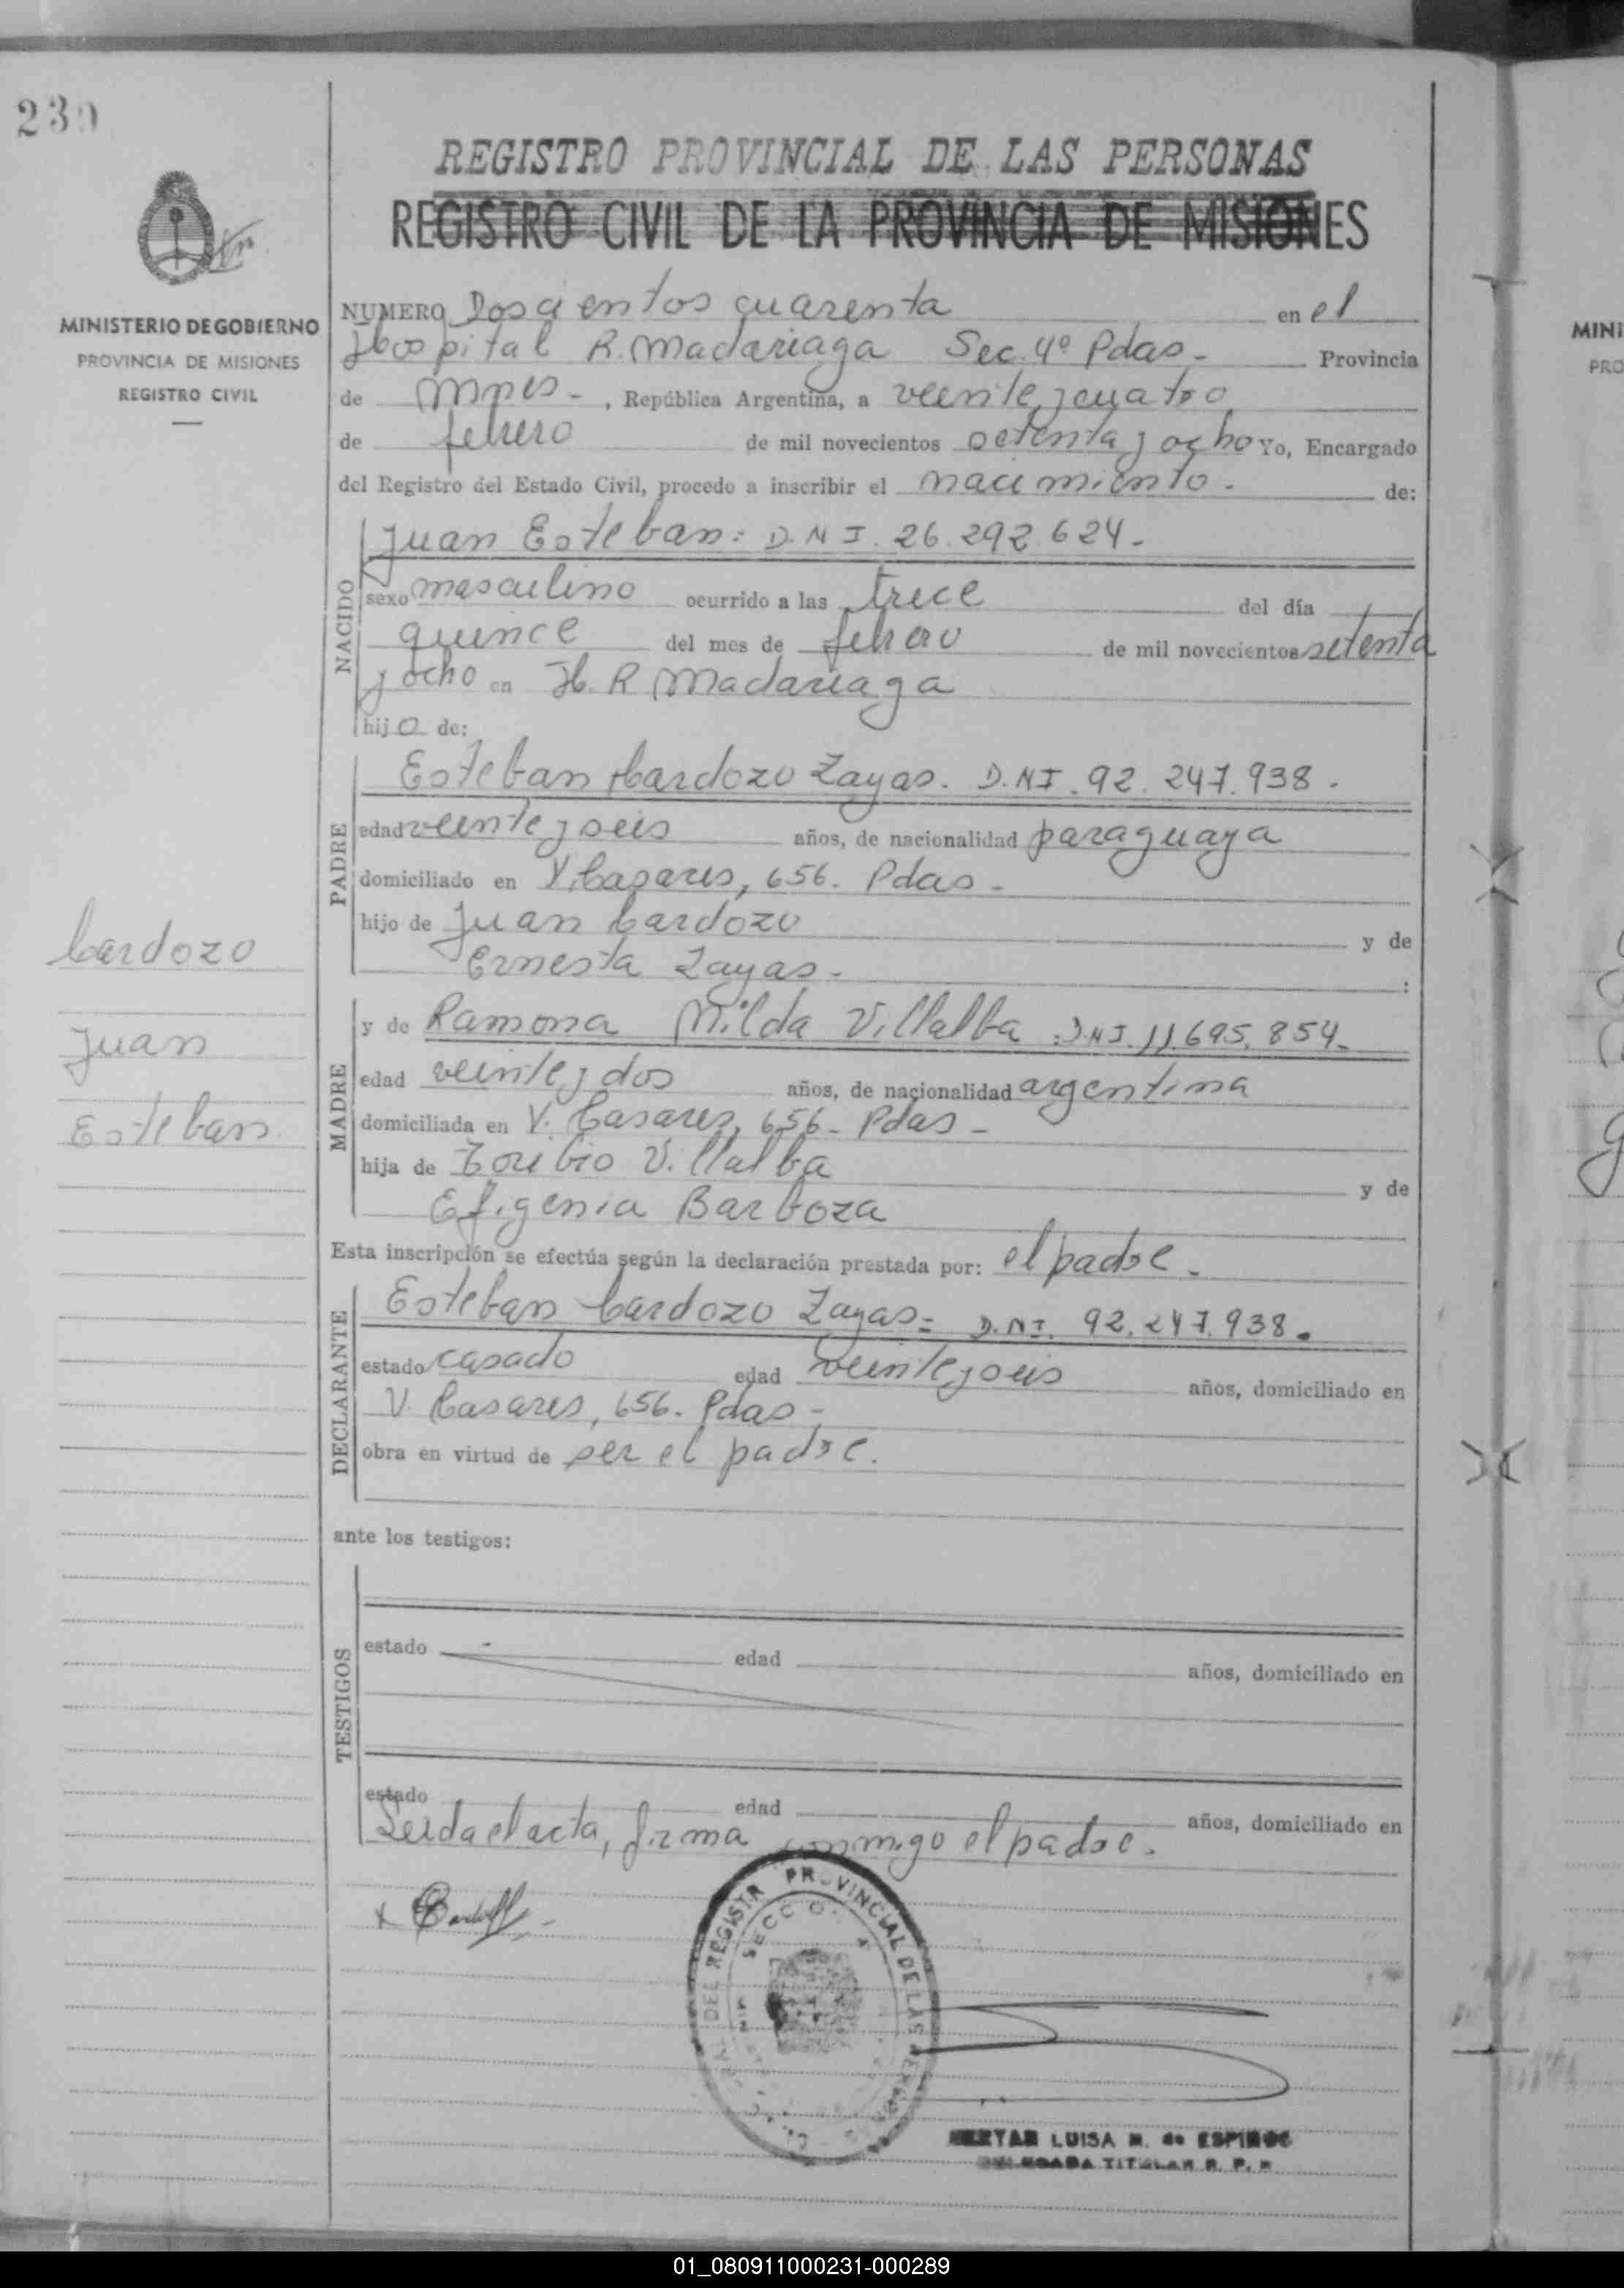 230
REGISTRO PROVINCIAL DE LAS PERSONAS
REGISTRO CIVIL DE LA PROVINCIA DE MISIONES
MINISTERIO DE GOBIERNO
PROVINCIA DE MISIONES
REGISTRO CIVIL
NUMERO Doscientos cuarenta en el
Hospital R. Madariaga Sec. 4º Pdas. Provincia
de Mnes - , República Argentina, a veinte y cuatro
de febrero de mil novecientos setenta y ocho Yo, Encargado
del Registro del Estado Civil, procedo a inscribir el nacimiento. de:
NACIDO
Juan Esteban: D.N.I. 26.292.624.
sexo masculino ocurrido a las trece del día
quince del mes de febrero de mil novecientos setenta
y ocho en H. R Madariaga
hijo de:
PADRE
Esteban Cardozo Zayas. D.N.I. 92.247.938.
edad veinte y seis años, de nacionalidad paraguaya
domiciliado en V. Casares, 656. Pdas.
hijo de Juan Cardozo y de
Ernesta Zayas. :
Cardozo
Juan
Esteban
MADRE
y de Ramona Nilda Villalba : D.N.I. 11.695.854.
edad veinte y dos años, de nacionalidad argentina
domiciliada en V. Casares, 656- Pdas -
hija de Toribio Villalba y de
Efigenia Barboza
Esta inscripción se efectúa según la declaración prestada por: el padre.
DECLARANTE
Esteban Cardozo Zayas= D.N.I. 92.247.938.
estado casado edad veinte y seis años, domiciliado en
V. Casares, 656. Pdas -
obra en virtud de ser el padre.
ante los testigos:
TESTIGOS
estado edad años, domiciliado en
estado edad años, domiciliado en
Leida el acta, firma conmigo el padre.
DEL REGISTR PROVINCIAL DE LAS
SECC
LUISA M. de
TITULAR R. P. P
MINI
PRO
01_080911000231-000289